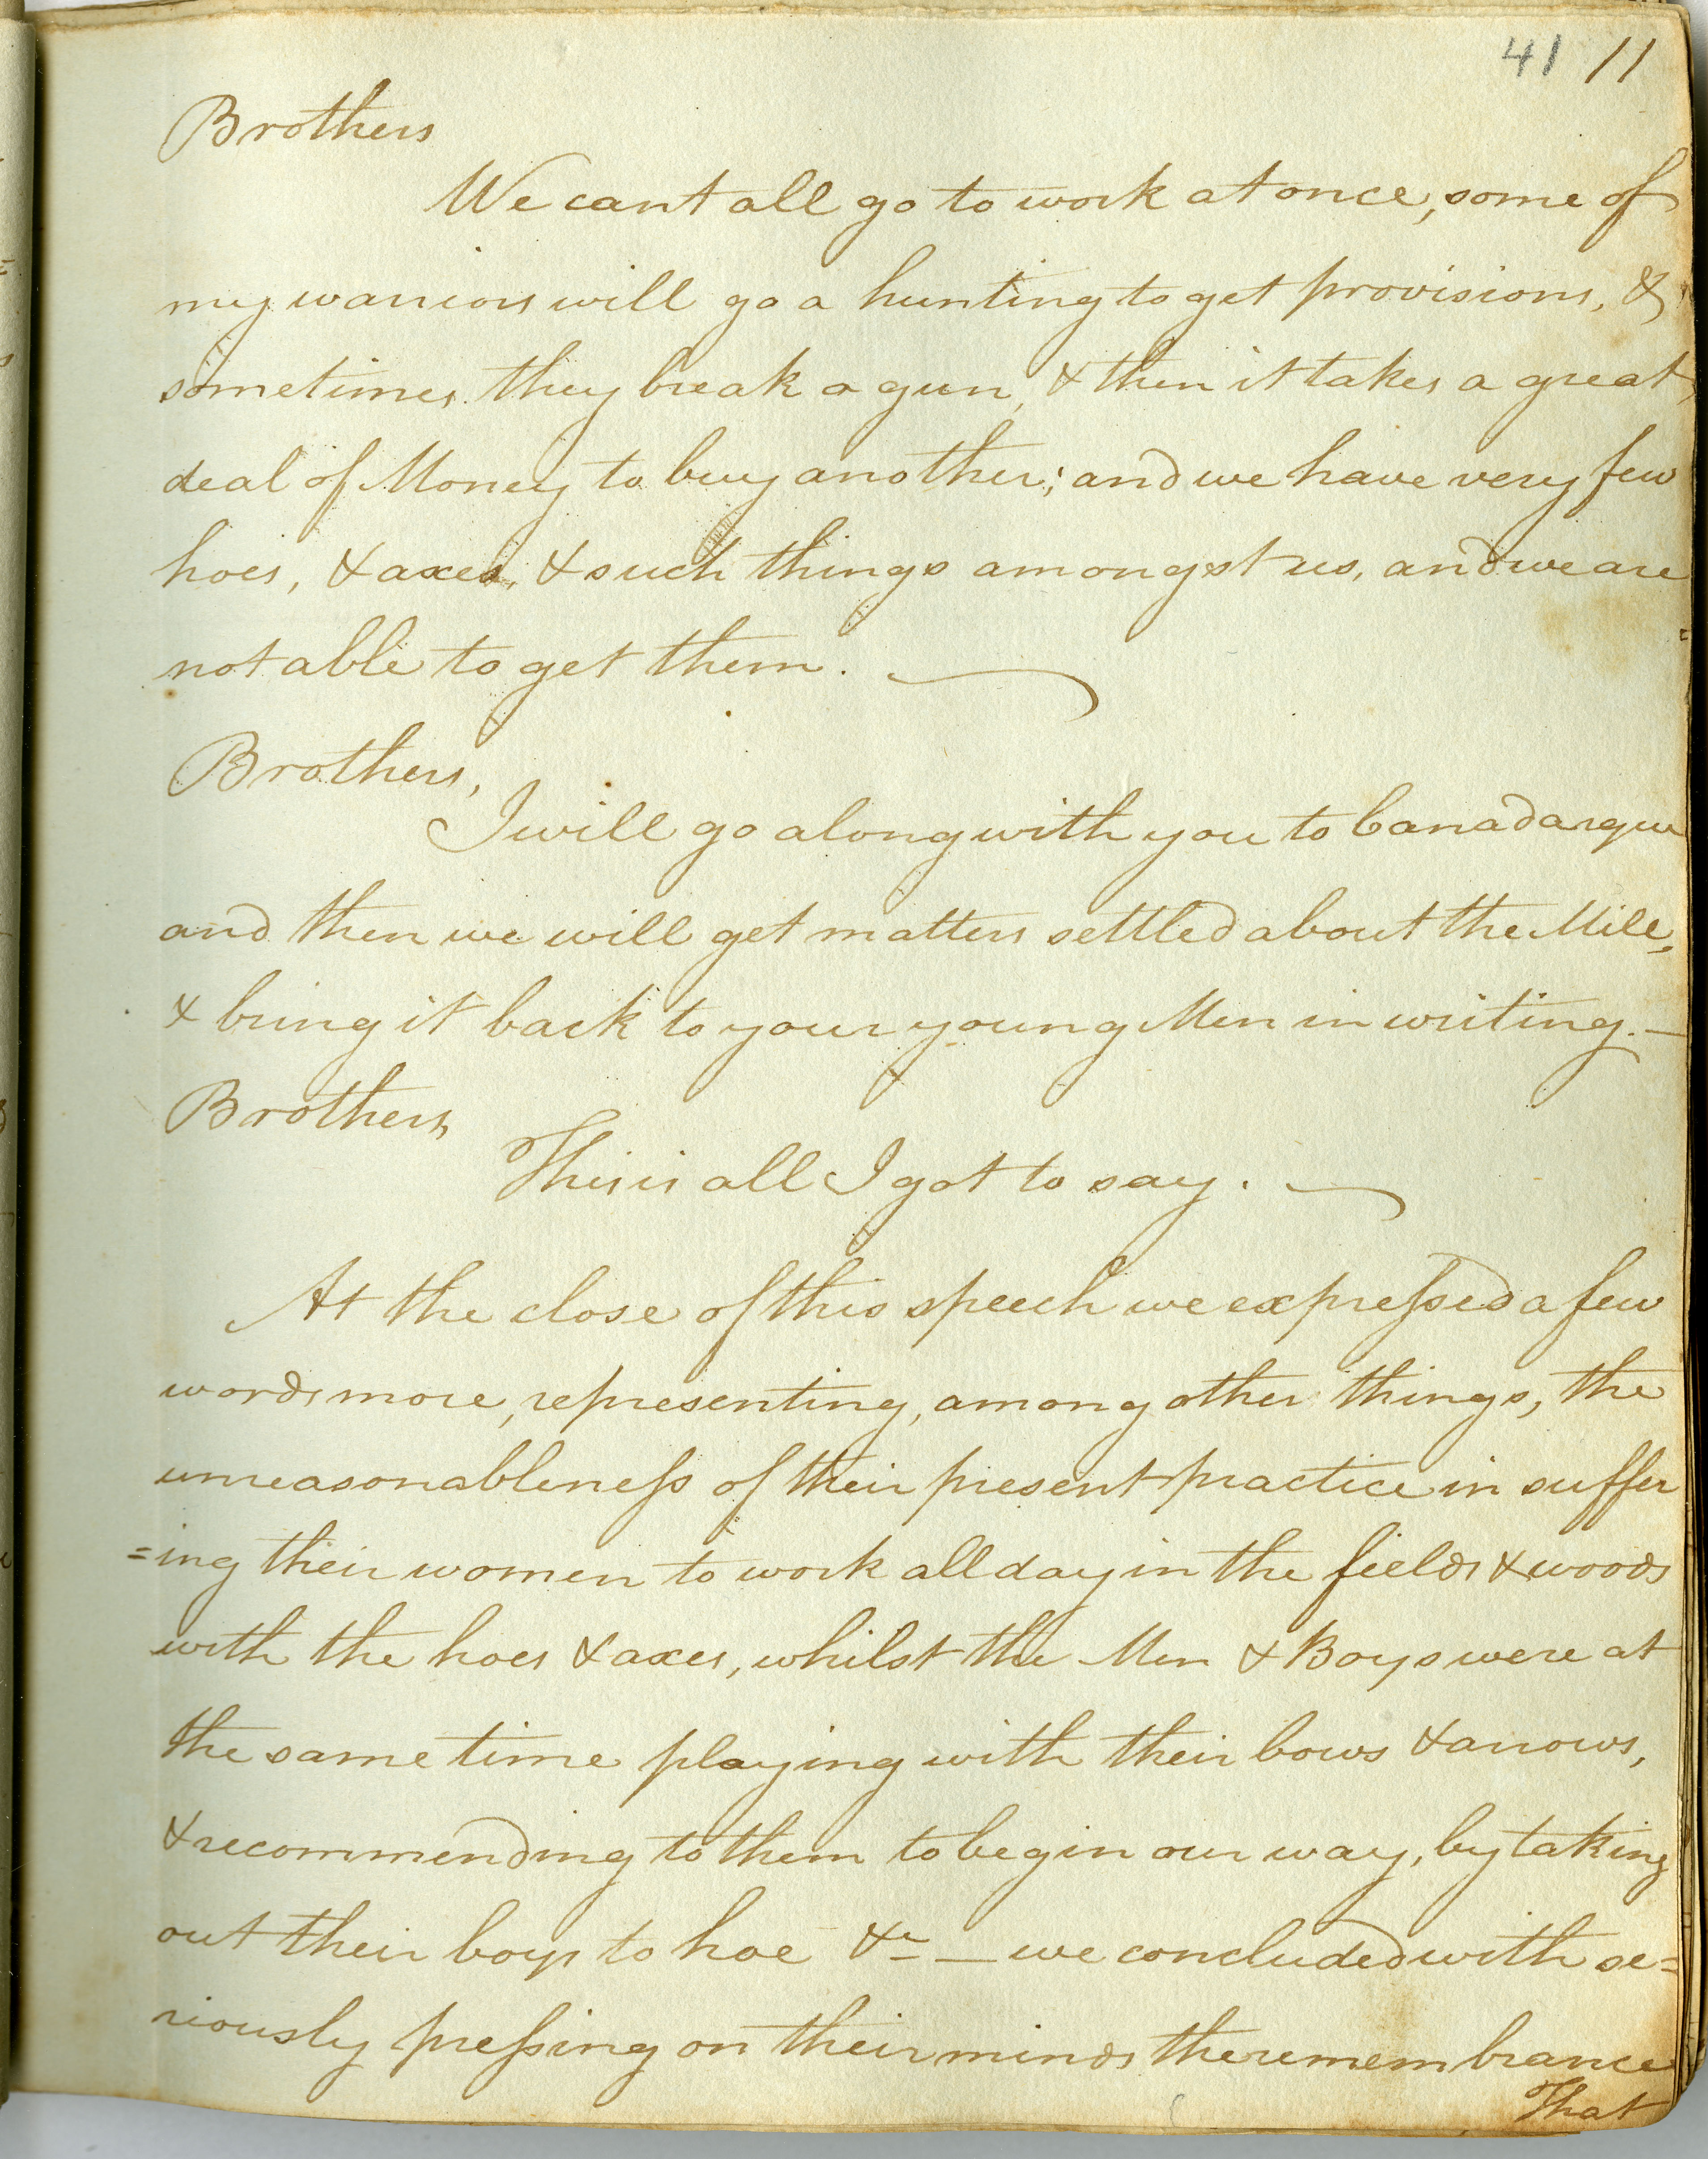 41 11
Brothers
We cant all go to work at once, some of
my warriors will go a hunting to get provisions, &
sometimes they break a gun, & then it takes a great
deal of Money to buy another; and we have very few
hoes, & axes, & such things amongst us, and we are
not able to get them.
Brothers,
I will go along with you to Canadarque
and then we will get matters settled about the Mill,
& bring it back to your young Men in writing. —
Brothers,
This is all I got to say.
At the close of this speech we expreſsed a few
words more, representing, among other things, the
unreasonableneſs of their present practice in suffer
=ing their women to work all day in the fields & woods
with the hoes & axes, whilst the Men & Boys were at
the same time playing with their bows & arrows,
& recommending to them to begin our way, by taking
out their boys to hoe &c — we concluded with se=
riously preſsing on their minds the remembrance
That